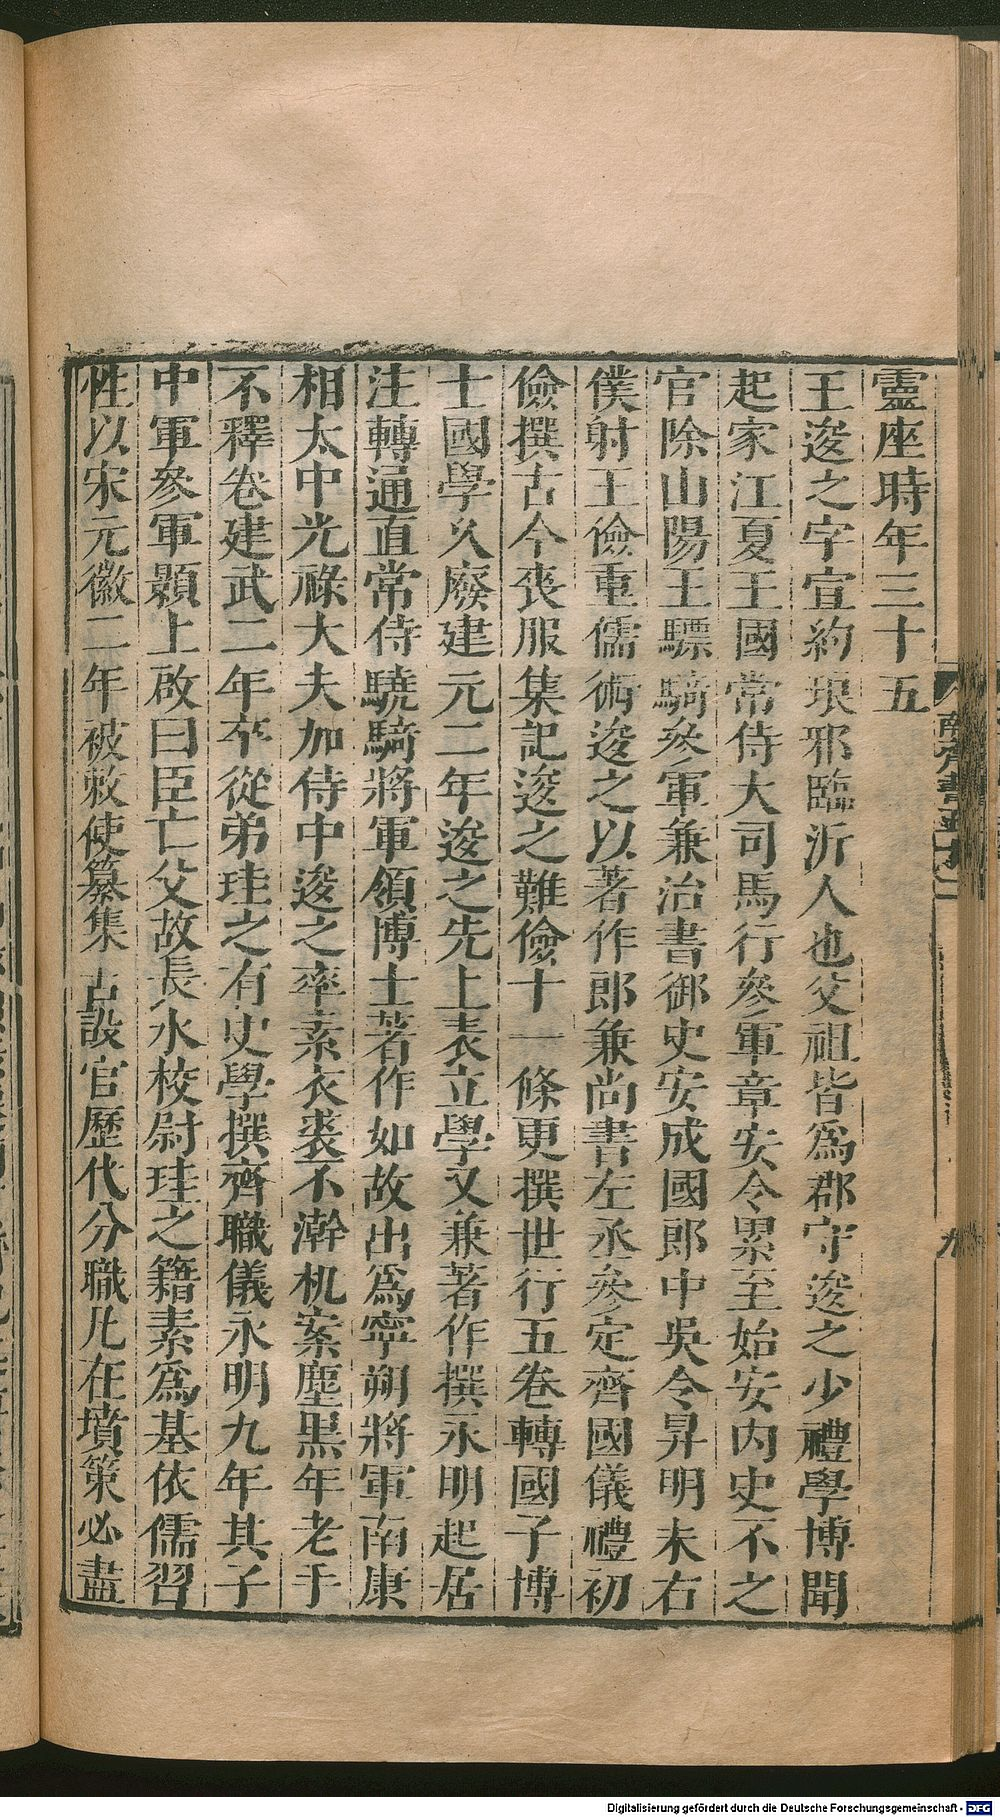 靈座時年三十五
王逡之字宣約琅邪臨沂人也父祖皆爲郡守逡之少禮學博聞
起家江夏王國常侍大司馬行參軍章安令累至始安內史不之
官除山陽王驃騎參軍兼治書御史安成國郎中吳令昇明末右
僕射王儉重儒術逡之以著作郎兼尚書左丞參定齊國儀禮初
儉撰古今喪服集記逡之難儉十一條更撰世行五卷轉國子博
士國學久廢建元二年逡之先上表立學又兼著作撰永明起居
注轉通直常侍驍騎將軍領博士著作如故出爲寧朔將軍南康
相太中光祿大夫加侍中逡之率素衣裘不澣机案塵黑年老手
不釋卷建武二年卒從弟珪之有史學撰齊職儀永明九年其子
中軍參軍顥上啟曰臣亡父故長水校尉珪之籍素爲基依儒習
性以宋元徽二年被敕使纂集古設官歷代分職凡在墳策必盡
南齊書五十二
九
Digitalisierung gefördert durch die Deutsche Forschungsgemeinschaft - DFG